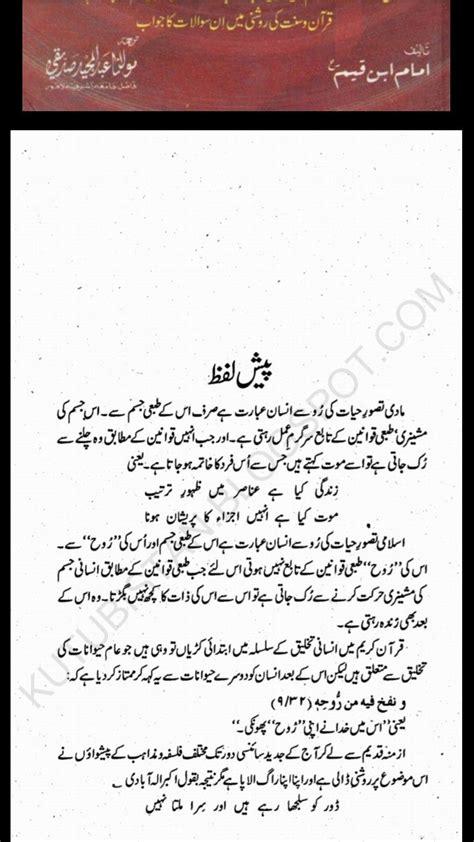 قرآن و سنت کی روشنی میں ان سوالات کا جواب
تالیف
امام ابن قیمؒ
مولانا عبدالمجید صدیقی
پیش لفظ
مادی تصورِ حیات کی رُو سے انسان عبارت ہے صرف اس کے طبعی جسم سے۔ اس جسم کی
مشینری طبعی قوانین کے تابع سرگرمِ عمل رہتی ہے۔ اور جب انہیں قوانین کے مطابق وہ چلنے سے
رُک جاتی ہے تو اسے موت کہتے ہیں جس سے اُس فرد کا خاتمہ ہو جاتا ہے۔ یعنی
زندگی کیا ہے عناصر میں ظہورِ ترتیب
موت کیا ہے انہیں اجزاء کا پریشان ہونا
اسلامی تصورِ حیات کی رُو سے انسان عبارت ہے اس کے طبعی جسم اور اُس کی ”رُوح“ سے۔
اس کی ”رُوح“ طبعی قوانین کے تابع نہیں ہوتی اس لئے جب طبعی قوانین کے مطابق انسانی جسم
کی مشینری حرکت کرنے سے رُک جاتی ہے تو اس سے اس کی ذات کا کچھ نہیں بگڑتا۔ وہ اس کے
بعد بھی زندہ رہتی ہے۔
قرآن کریم میں انسانی تخلیق کے سلسلہ میں ابتدائی کڑیاں تو وہی ہیں جو عام حیوانات کی
تخلیق سے متعلق ہیں لیکن اس کے بعد انسان کو دوسرے حیوانات سے یہ کہہ کر ممتاز کر دیا ہے کہ:
و نفخ فیہ من رُّوحِہٖ (۹/۳۲)
یعنی ”اس میں خدا نے اپنی ”رُوح“ پھونکی۔“
ازمنہ قدیم سے لے کر آج کے جدید سائنسی دور تک مختلف فلسفہ و مذاہب کے پیشواؤں نے
اس موضوع پر روشنی ڈالی ہے اور اپنا اپنا راگ الاپا ہے مگر نتیجہ بقول اکبر الٰہ آبادی۔
ڈور کو سلجھا رہے ہیں اور سِرا ملتا نہیں
KUTUBISTAN.BLOGSPOT.COM